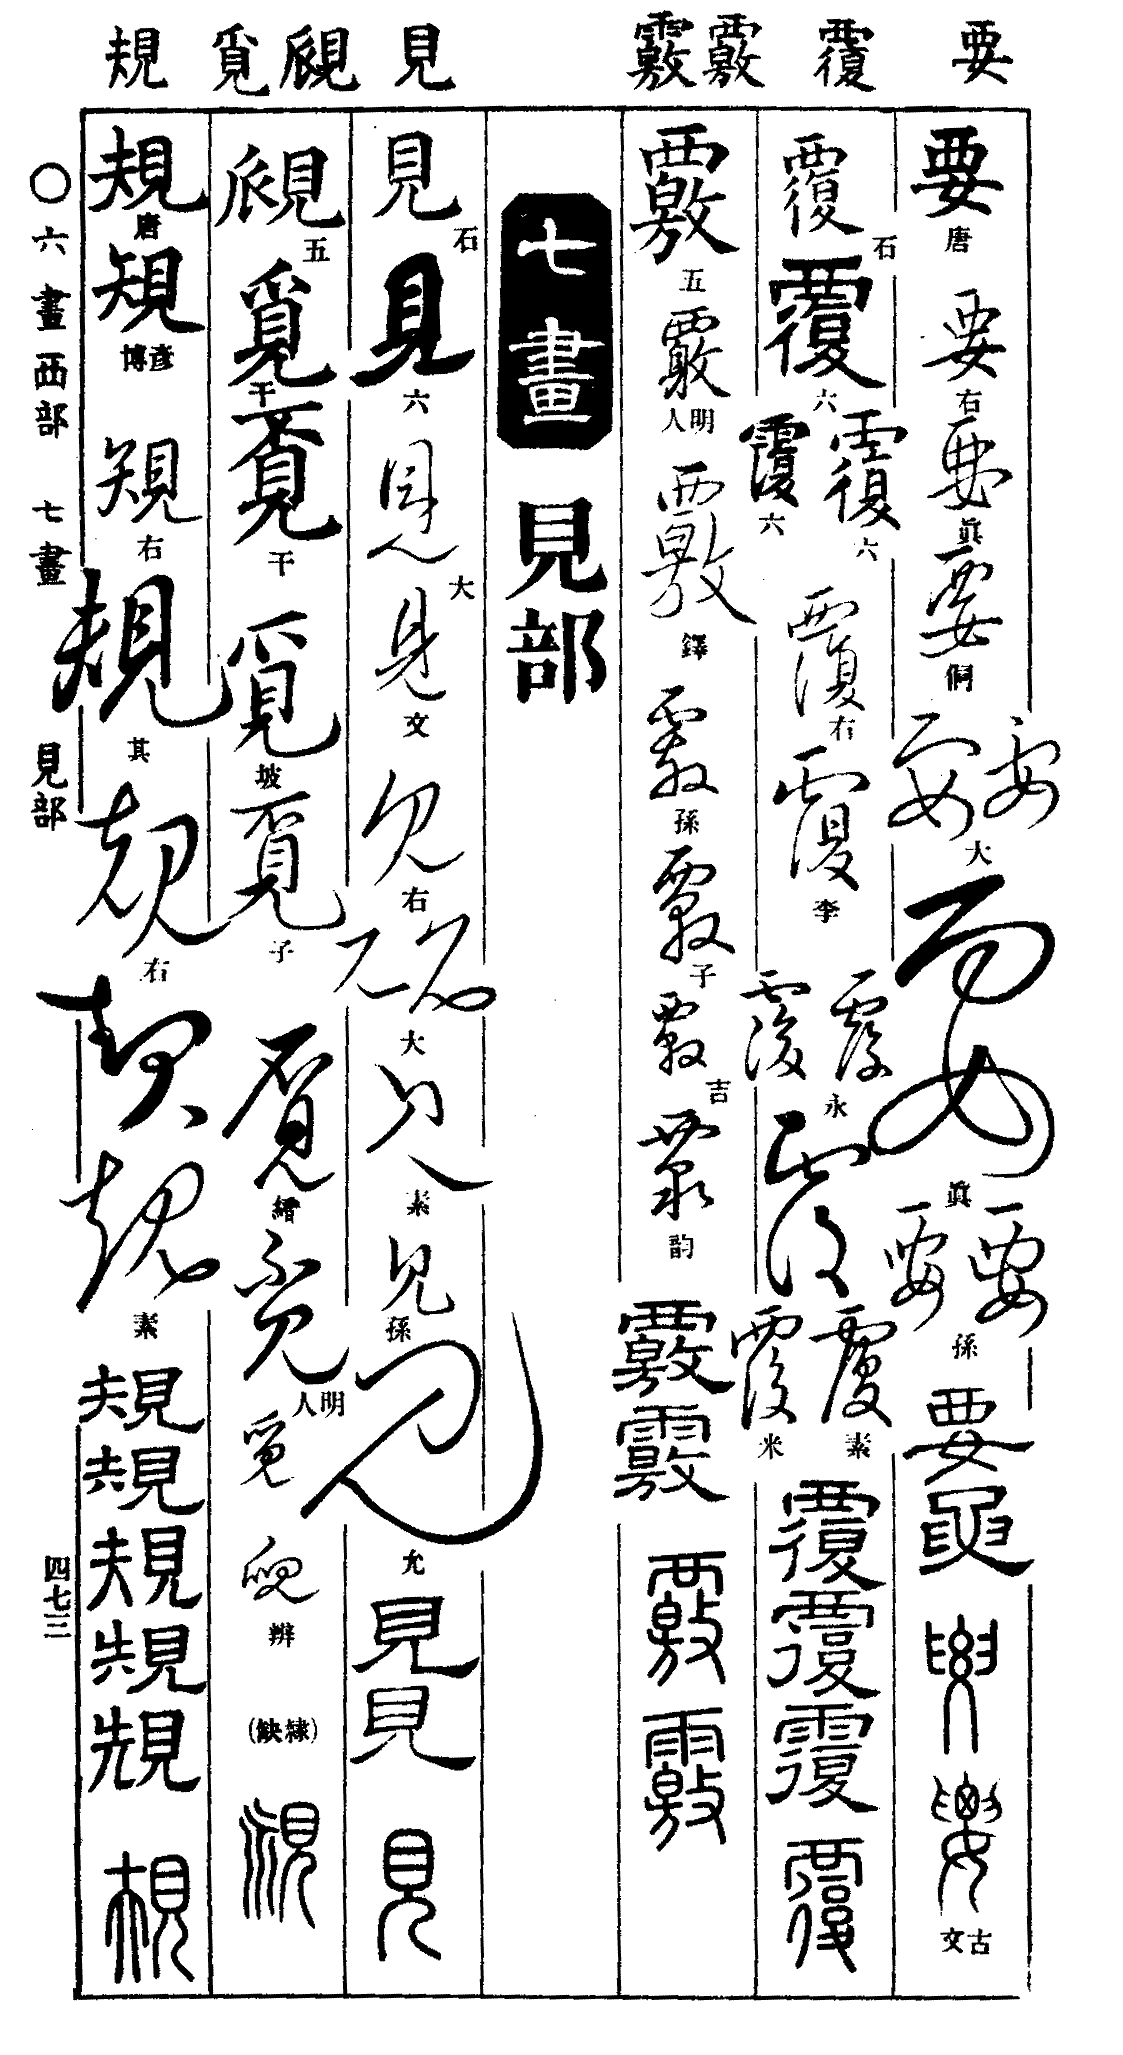 要 覆 覈 覈 見 覛 覓 規
要 唐 要 右 要 眞 要 侗 要 要 大 要 眞 要 要 孫 要 要 古文
覆 石 覆 六 覆 覆 六 六 覆 右 覆 李 覆 覆 永 覆 覆 覆 素 米 覆 覆 覆 覆
覈 五 覈 明人 覈 鐸 覈 孫 覈 子 覈 吉 覈 韵 覈 覈 覈 覈
七畫 見部
見 石 見 六 見 大 見 文 見 右 見 見 大 見 素 見 孫 見 允 見 見 見
覛 五 覓 干 覓 干 覓 坡 覓 子 覓 繒 覓 明人 覓 覛 辨 (隸缺) 覛
規 唐 規 彥博 規 右 規 其 規 右 規 規 素 規 規 規 規 規 規
〇六畫 西部 七畫 見部 四七三